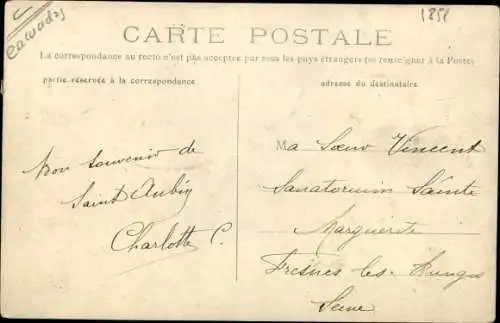 1251
CARTE POSTALE
La correspondance au recto n'est pas acceptée par tous les pays étrangers (se renseigner à la Poste)
partie réservée à la correspondance
adresse du destinataire
Bon souvenir de
Saint Aubin
Charlotte C.
Ma Sœur Vincent
Sanatorium Sainte
Marguerite
Fresnes les Rungis
Seine